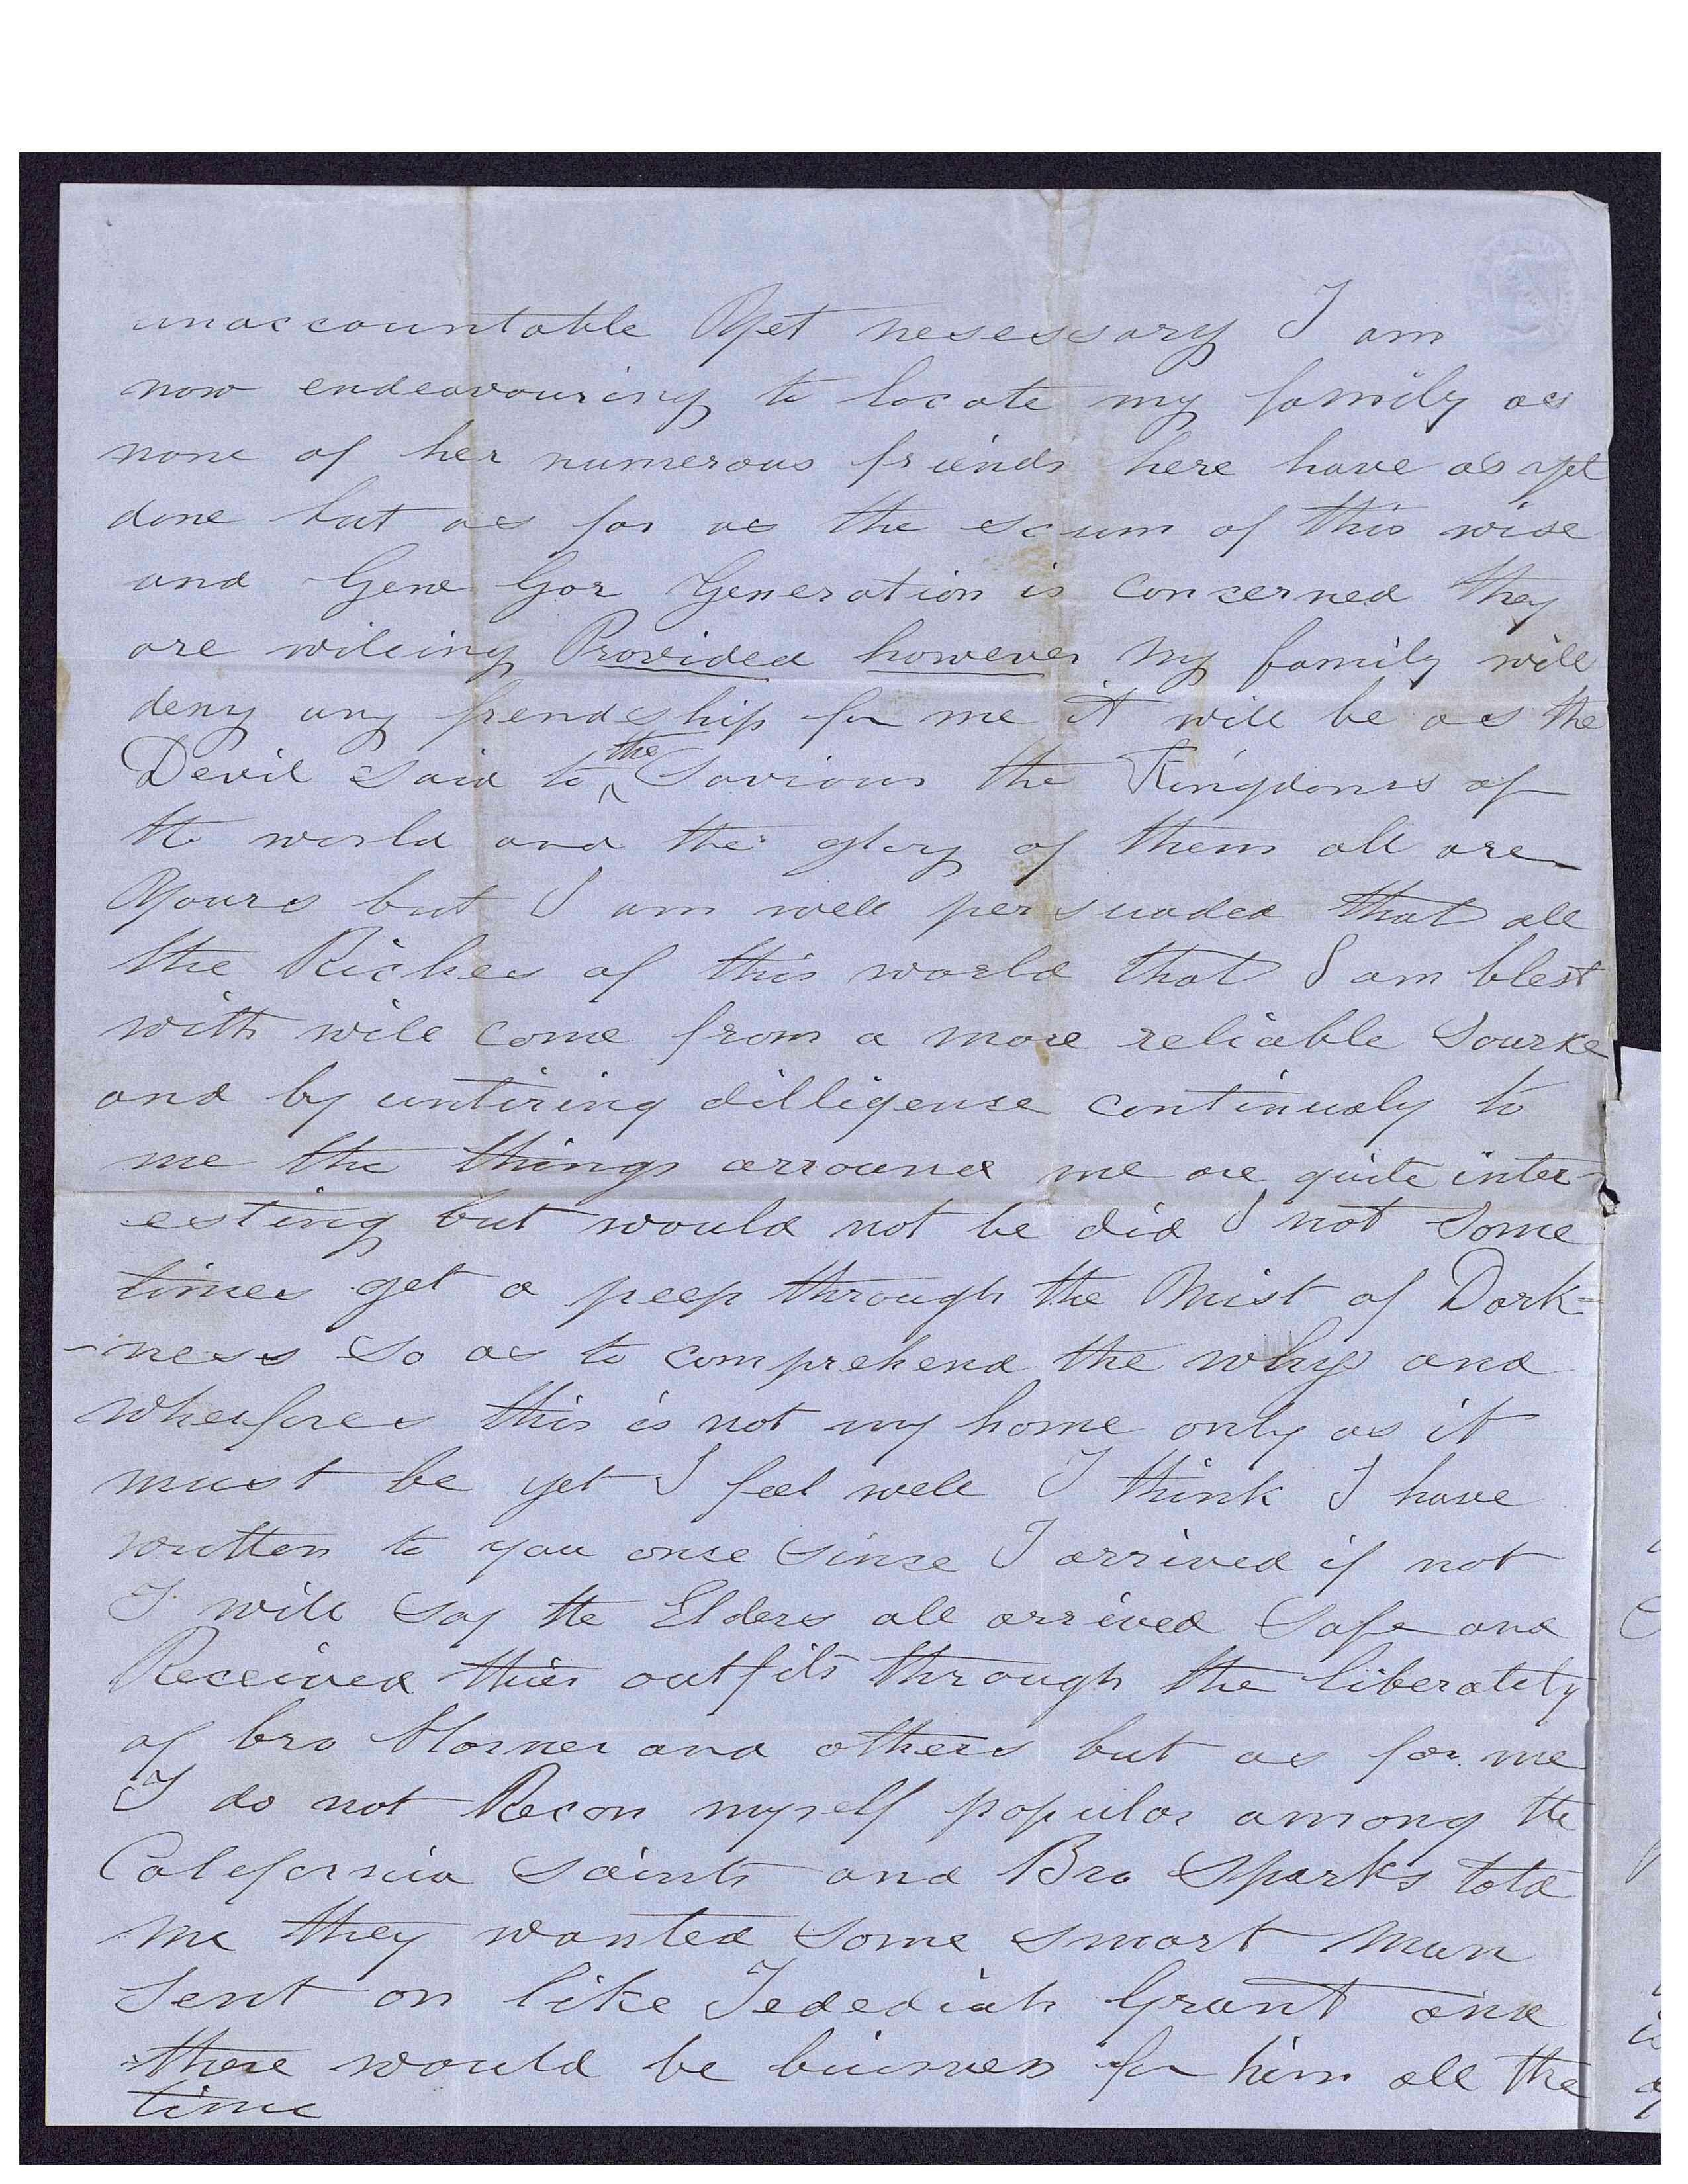 unaccountable Yet nesessary I am
now endeavouring to locate my family as
none of her numerous friends here have as yet
done but as for as the scum of this wise
and Gene Gar Generation is conserned they
are willing Provided however my family will
deny any frendship for me it will be as the
Devil said to the Saviour the Kingdoms of
the world and the glory of them all are
Yours but I am well persuaded that all
the Riches of this world that I am blest
with will come from a more reliable Sourse
and by untiring dilligense continualy to
me the things arround me are quite inter-
esting but would not be did I not some
times get a peep through the Mist of Dark-
-ness so as to comprehend the whys and
wherfores this is not my home only as it
must be yet I feel well I think I have
written to you once since I arrived if not
I will say the Elders all arrived safe and
Received thier outfits through the liberality
of bro Horner and others but as for me
I do not Recon myself popular among the
California saints and Bro Sparks told
me they wanted some smart man
sent on like Jedediah Grant and
there would be buisness for him all the
time